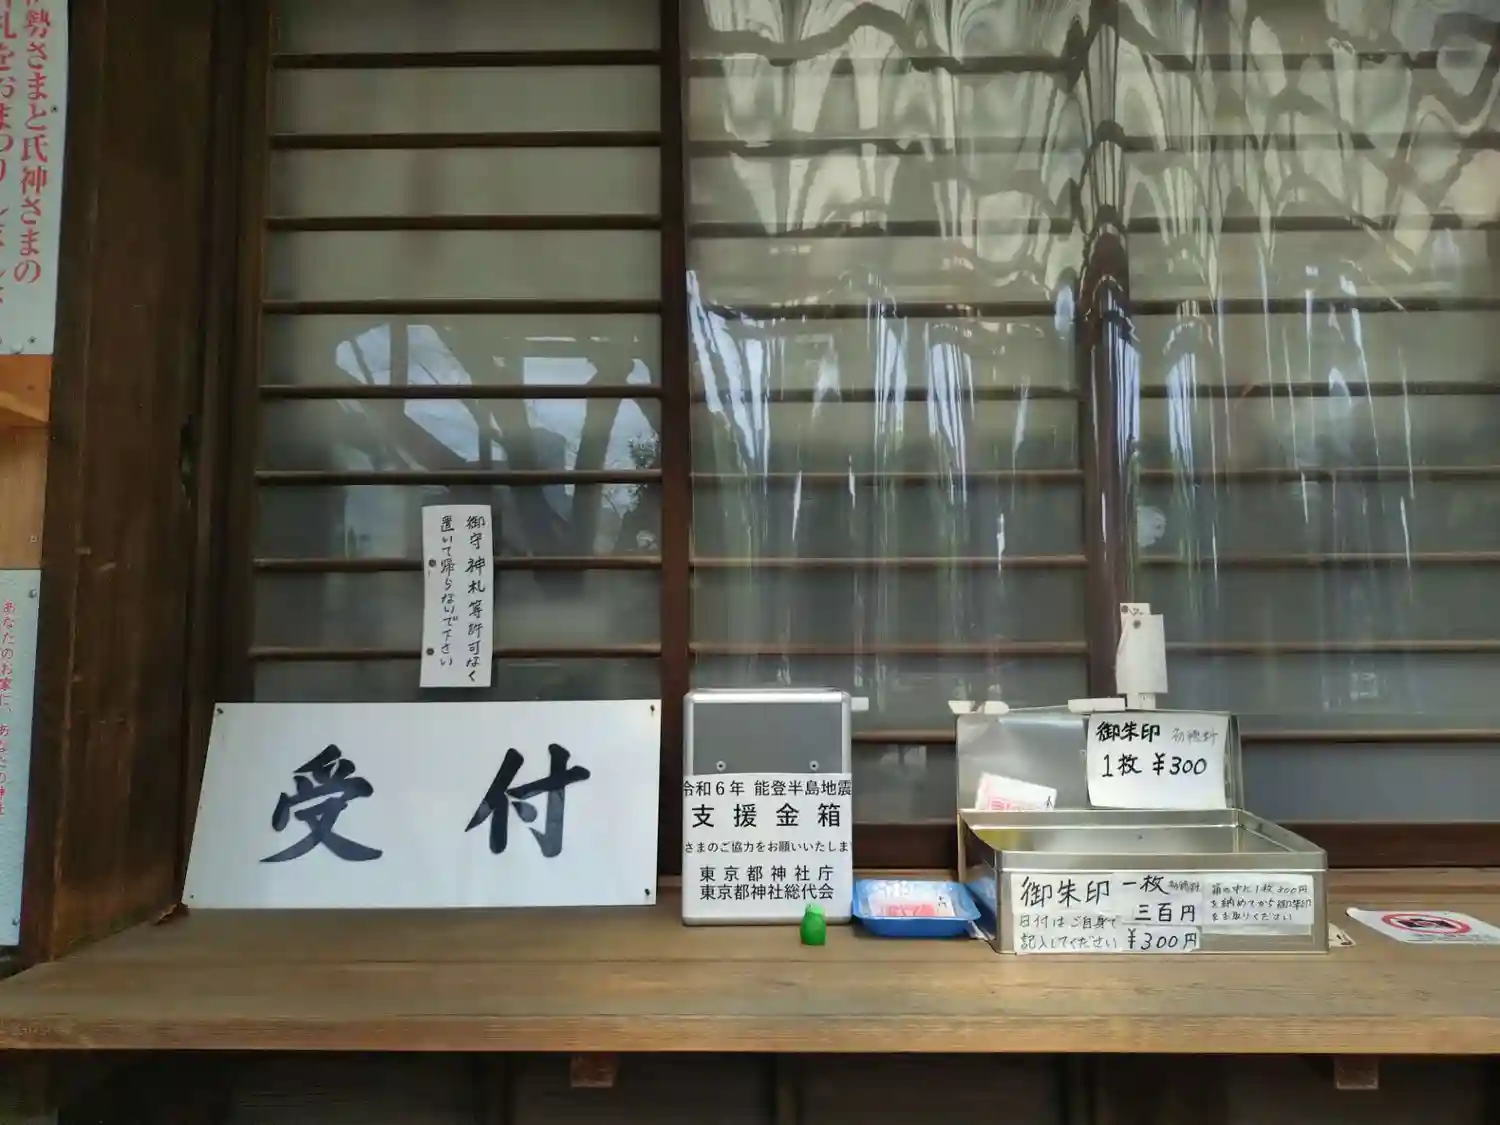 伊勢さまと氏神さまの
御守神札等許可なく
置いて帰らないで下さい
受付
令和6年 能登半島地震
支援金箱
さまのご協力をお願いいたしま
東京都神社庁
東京都神社総代会
御朱印
1枚 ¥300
御朱印 一枚
三百円
日付はご自身で
記入してください
¥300円
箱の中に1枚300円
を納めてから御朱印
をお取りください
あなたのお家に、あなたの神社